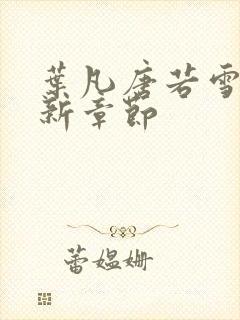 葉凡唐若雪
新章節
蕾媪姗